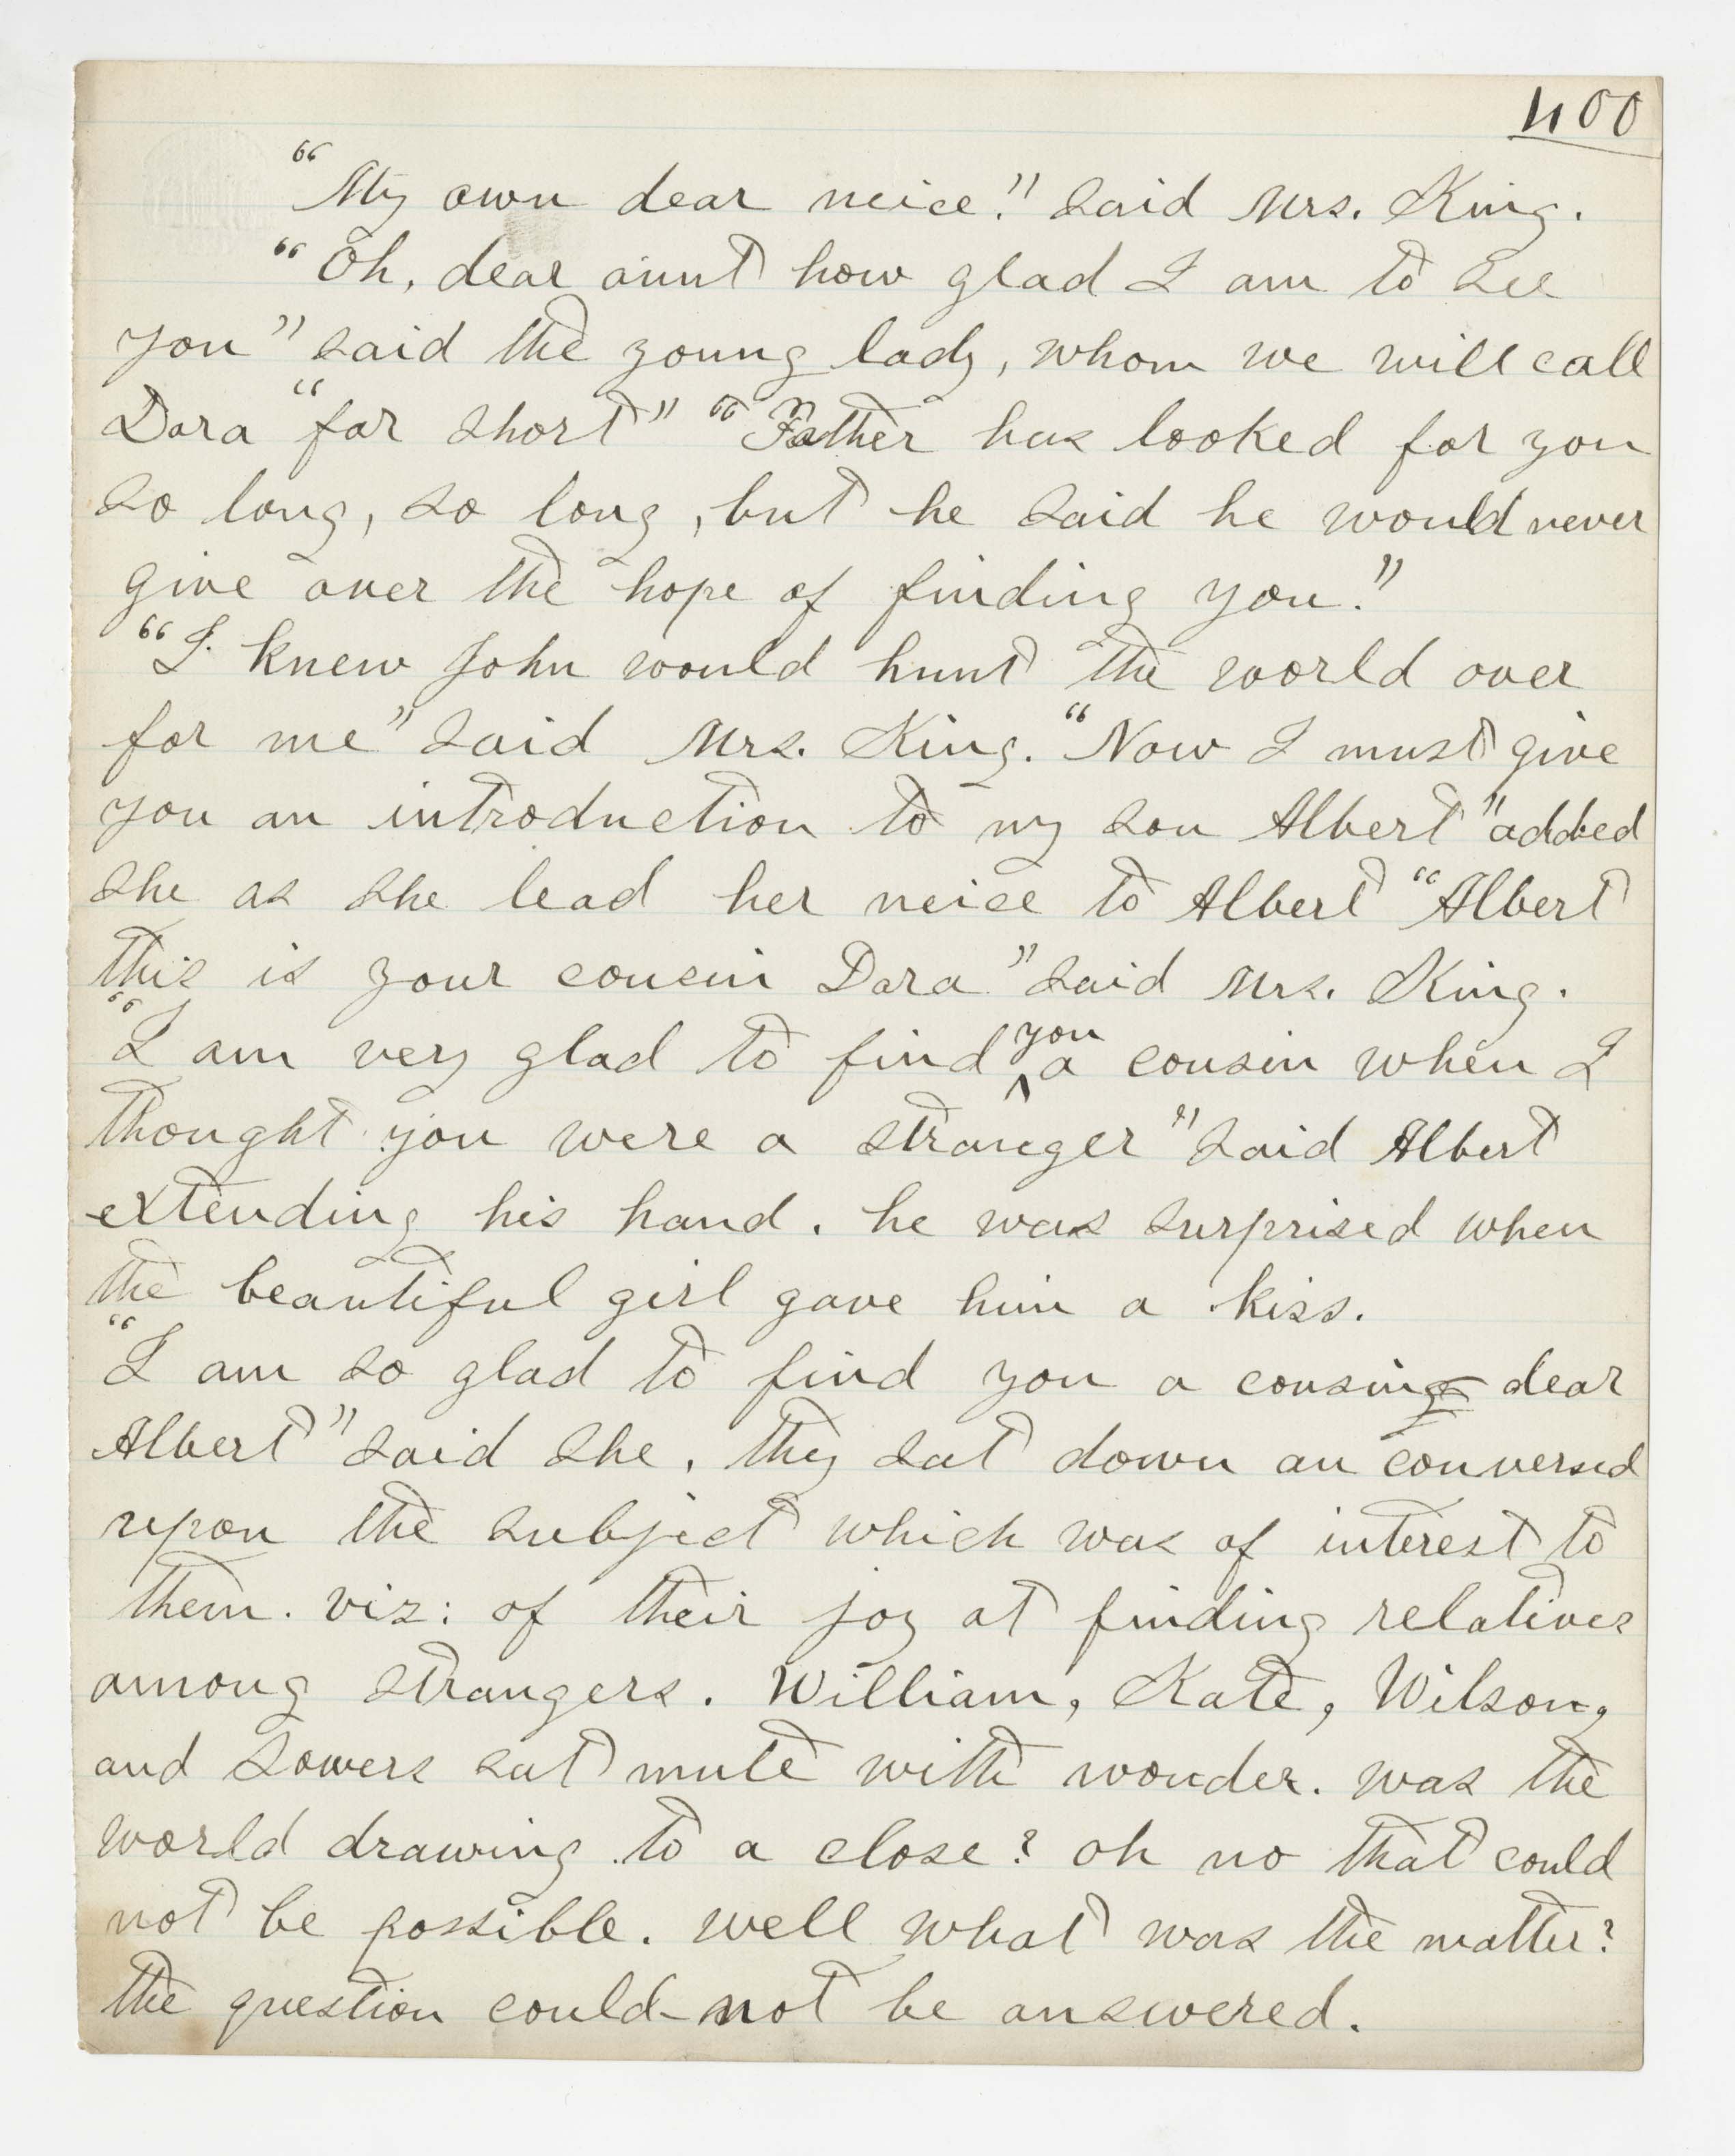 400
"My own dear neice." said Mrs. King.
"Oh, dear aunt how glad I am to see
you" said the young lady, whom we will call
Dora "for short" "Father has looked for you
so long, so long, but he said he would never
give over the hope of finding you."
"I knew John would hunt the world over
for me" said Mrs. King. "Now I must give
you an introduction to my son Albert" added
she as she lead her neice to Albert "Albert
this is your cousin Dora" said Mrs. King.
"I am very glad to find you a cousin when I
thought you were a stranger" said Albert
extending his hand. he was surprised when
the beautiful girl gave him a kiss.
"I am so glad to find you a cousin dear
Albert" said she. they sat down an conversed
upon the subject which was of interest to
them. viz: of their joy at finding relatives
among strangers. William, Kate, Wilson,
and Sowers sat mute with wonder. was the
world drawing to a close? oh no that could
not be possible. well what was the matter?
the question could not be answered.